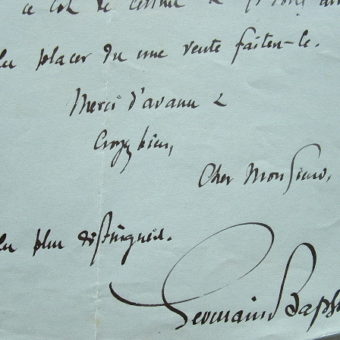 ce
placer du une vente faites-le.
Merci d'avance
Croyez bien,
Cher Monsieur,
plus distingués.
Germain Baps